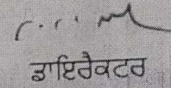 ਡਾਇਰੈਕਟਰ